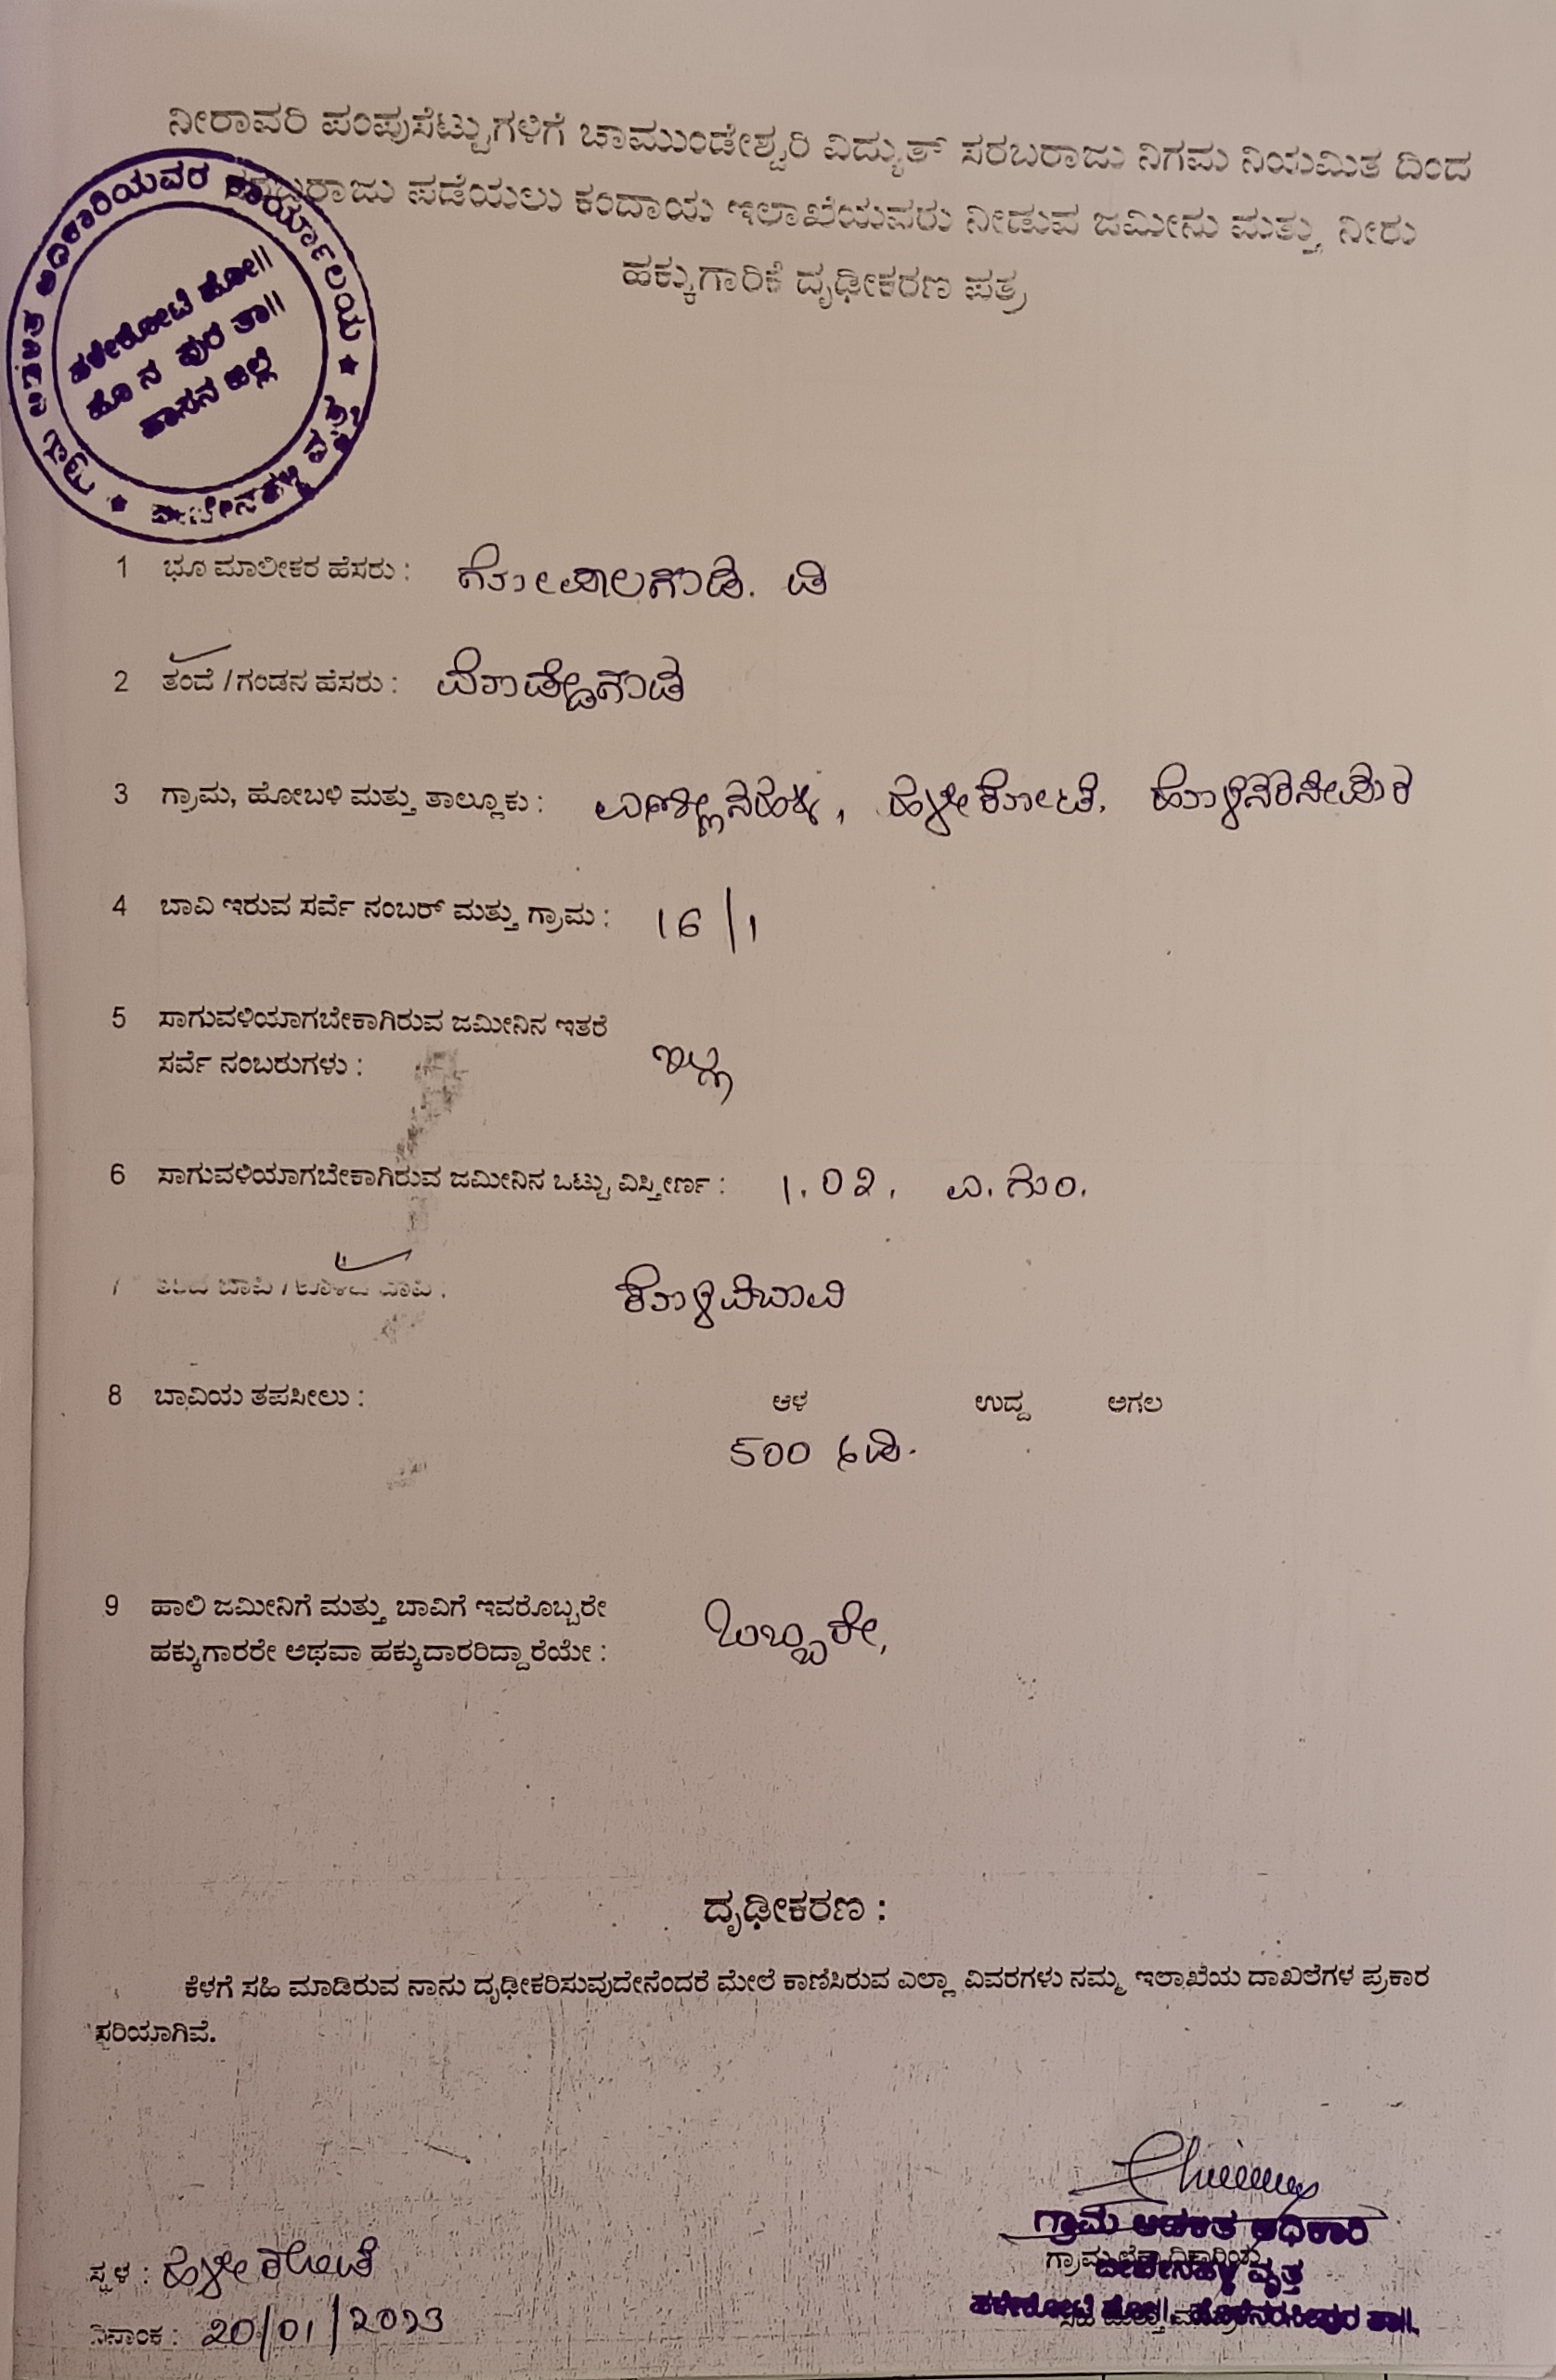 ನೀರಾವರಿ ಪಂಪುಸೆಟ್ಟುಗಳಿಗೆ ಚಾಮುಂಡೇಶ್ವರಿ ವಿದ್ಯುತ್ ಸರಬರಾಜು ನಿಗಮ ನಿಯಮಿತ ದಿಂದ
ಸರಬರಾಜು ಪಡೆಯಲು ಕಂದಾಯ ಇಲಾಖೆಯವರು ನೀಡುವ ಜಮೀನು ಮತ್ತು ನೀರು
ಹಕ್ಕುಗಾರಿಕೆ ದೃಢೀಕರಣ ಪತ್ರ
ಗ್ರಾಮ ಆಡಳಿತ ಅಧಿಕಾರಿಯವರ ಕಾರ್ಯಾಲಯ
ಹಳೇಕೋಟೆ ಹೋ॥
ಹೊ ನ ಪುರ ತಾ॥
ಹಾಸನ ಜಿಲ್ಲೆ
1 ಭೂ ಮಾಲೀಕರ ಹೆಸರು : ಗೋಪಾಲಗೌಡ. ಡಿ
2 ತಂದೆ / ಗಂಡನ ಹೆಸರು : ದೊಡ್ಡೇಗೌಡ
3 ಗ್ರಾಮ, ಹೋಬಳಿ ಮತ್ತು ತಾಲ್ಲೂಕು : ಹಳೇಕೋಟೆ, ಹೊಳೆನರಸೀಪುರ
4 ಬಾವಿ ಇರುವ ಸರ್ವೆ ನಂಬರ್ ಮತ್ತು ಗ್ರಾಮ : 16/1
5 ಸಾಗುವಳಿಯಾಗಬೇಕಾಗಿರುವ ಜಮೀನಿನ ಇತರೆ
ಸರ್ವೆ ನಂಬರುಗಳು : ಇಲ್ಲ
6 ಸಾಗುವಳಿಯಾಗಬೇಕಾಗಿರುವ ಜಮೀನಿನ ಒಟ್ಟು ವಿಸ್ತೀರ್ಣ : 1.02. ಎ.ಗುಂ.
7 ತೆರೆದ ಬಾವಿ / ಕೊಳವೆ ಬಾವಿ : ಕೊಳವೆಬಾವಿ
8 ಬಾವಿಯ ತಪಸೀಲು : ಆಳ ಉದ್ದ ಅಗಲ
500 ಅಡಿ.
9 ಹಾಲಿ ಜಮೀನಿಗೆ ಮತ್ತು ಬಾವಿಗೆ ಇವರೊಬ್ಬರೇ
ಹಕ್ಕುಗಾರರೇ ಅಥವಾ ಹಕ್ಕುದಾರರಿದ್ದಾರೆಯೇ : ಒಬ್ಬರೇ,
ದೃಢೀಕರಣ :
ಕೆಳಗೆ ಸಹಿ ಮಾಡಿರುವ ನಾನು ದೃಢೀಕರಿಸುವುದೇನೆಂದರೆ ಮೇಲೆ ಕಾಣಿಸಿರುವ ಎಲ್ಲಾ ವಿವರಗಳು ನಮ್ಮ ಇಲಾಖೆಯ ದಾಖಲೆಗಳ ಪ್ರಕಾರ
ಸರಿಯಾಗಿವೆ.
ಗ್ರಾಮ ಆಡಳಿತ ಅಧಿಕಾರಿ
ವೃತ್ತ
ಹಳೇಕೋಟೆ ಹೋ॥, ಹೊಳೆನರಸೀಪುರ ತಾ॥.
ಸ್ಥಳ : ಹಳೇಕೋಟೆ
ದಿನಾಂಕ : 20/01/2023